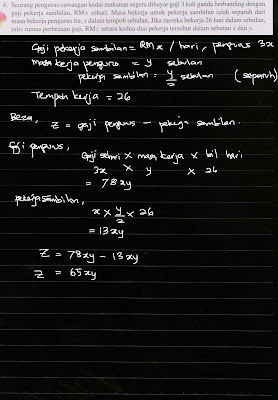 4. Seorang pengurus cawangan kedai makanan segera dibayar gaji 3 kali ganda berbanding dengan
gaji pekerja sambilan, RMx sehari. Masa bekerja untuk pekerja sambilan ialah separuh dari
masa bekerja pengurus itu, y dalam tempoh sebulan. Jika mereka bekerja 26 hari dalam sebulan,
tulis rumus perbezaan gaji, RMz antara kedua-dua pekerja tersebut dalam sebutan x dan y.
Gaji pekerja sambilan = RMx / hari, pengurus 3x
masa kerja pengurus = y sebulan
pekerja sambilan = y/2 sebulan (separuh)
Tempoh kerja = 26
Beza, z = gaji pengurus - pekerja sambilan.
Gaji pengurus,
Gaji sehari x masa kerja x bil hari
3x x y x 26
= 78xy
pekerja sambilan,
x x y/2 x 26
= 13xy
z = 78xy - 13xy
z = 65xy